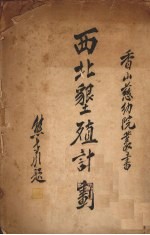 香山慈幼院叢書
西北墾殖計劃
熊希齡題